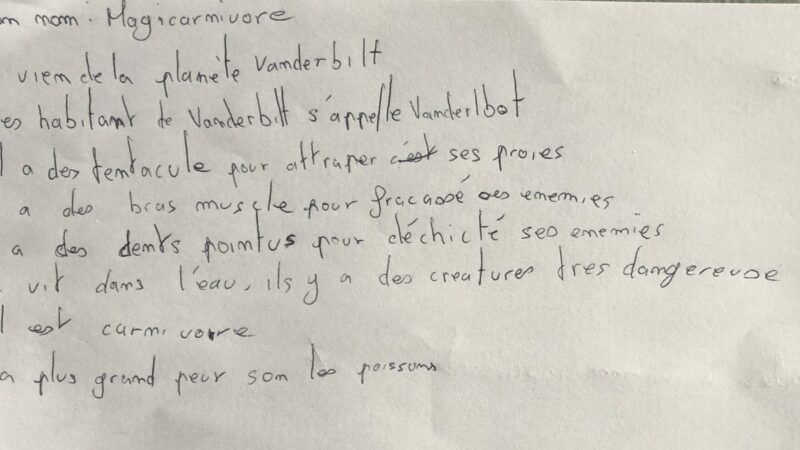 n nom : Magicarnivore
viem de la planète Vanderbilt
es habitant de Vanderbilt s'appelle Vanderlbot
l a des tentacule pour attraper c'est ses proies
a des bras muscle pour fracassé ses enemies
a des dents pointus pour déchicté ses enemies
vit dans l'eau, ils y a des creatures tres dangereuse
l est carnivore
a plus grand peur son les poissons